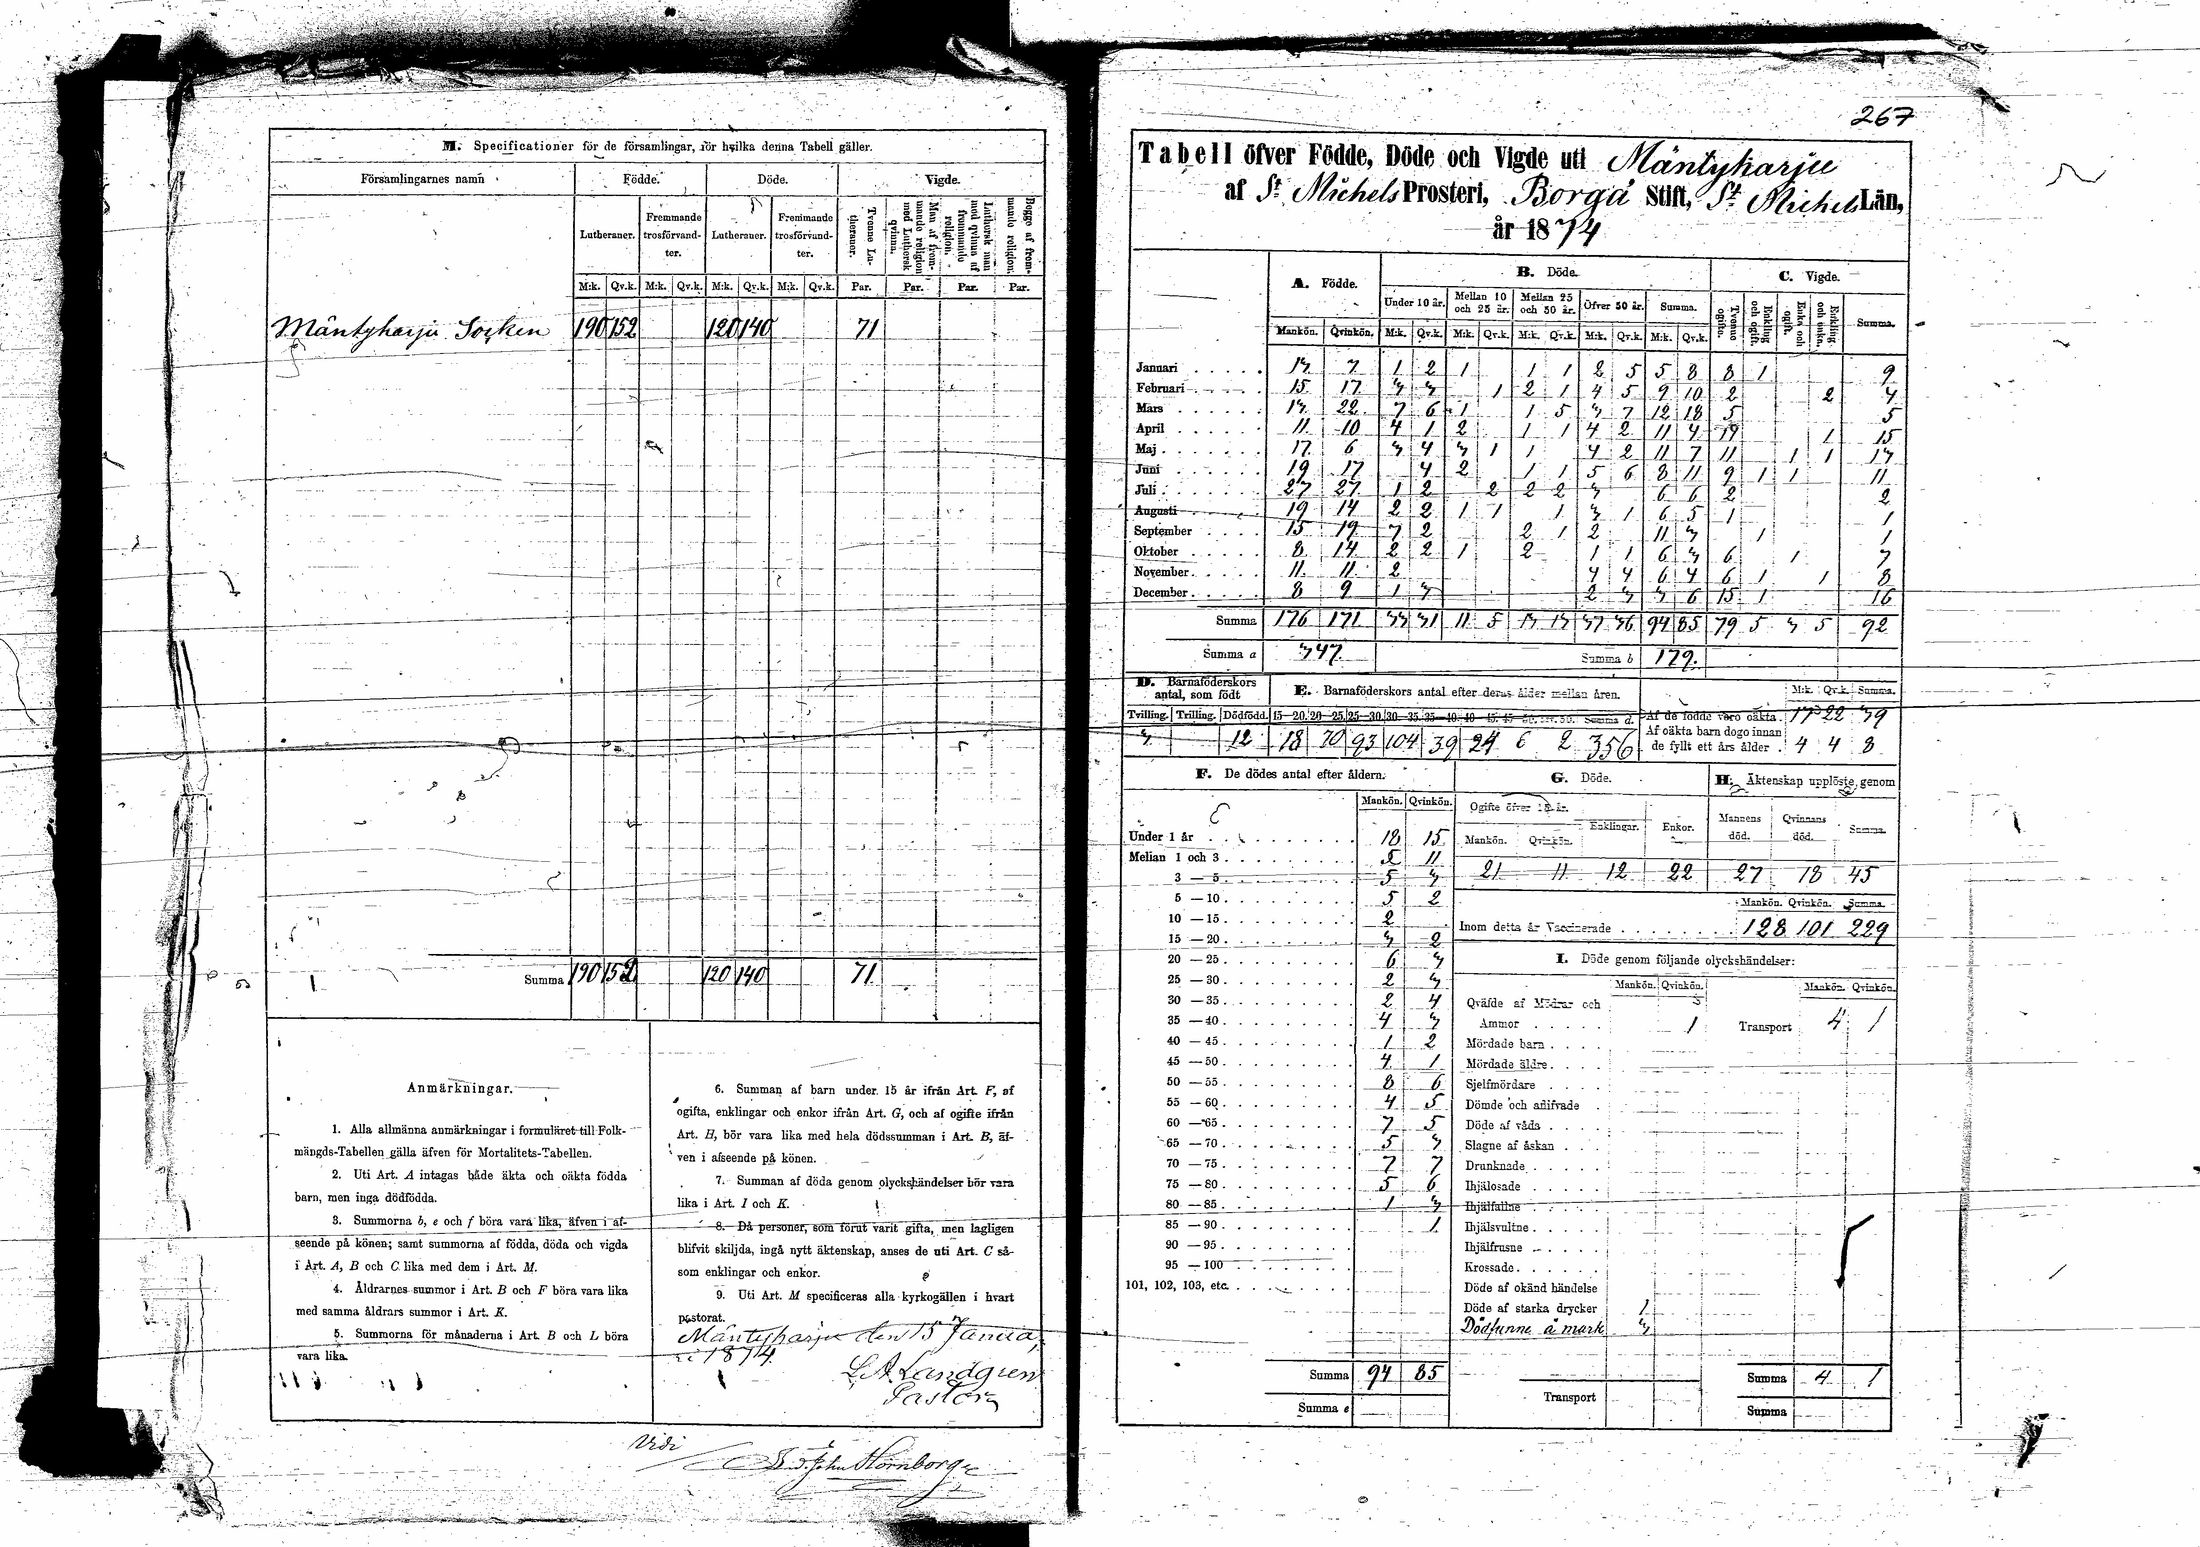 M. Specificationer för de församlingar, för hvilka denna Tabell gäller.
Församlingarnes namn Födde. Döde. Vigde.
Lutheraner. Fremmande trosförvandter. Lutheraner. Fremmande trosförvandter. Tvenne Lutheraner. Man af frommande religion med Luthersk qvinna. Luthersk man med qvinna af frommande religion. Begge af frommande religion.
M:k. Qv.k. M:k. Qv.k. M:k. Qv.k. M:k. Qv.k. Par. Par. Par. Par.
Mäntyharju Socken 190 152 120 140 71
Summa 190 152 120 140 71
Anmärkningar.
1. Alla allmänna anmärkningar i formuläret till Folk-
mängds-Tabellen gälla äfven för Mortalitets-Tabellen.
2. Uti Art. A intagas både äkta och oäkta födda
barn, men inga dödfödda.
3. Summorna b, e och f böra vara lika, äfven i af-
seende på könen; samt summorna af födda, döda och vigda
i Art. A, B och C lika med dem i Art. M.
4. Åldrarnes summor i Art. B och F böra vara lika
med samma åldrars summor i Art. K.
5. Summorna för månaderna i Art. B och L böra
vara lika.
6. Summan af barn under 15 år ifrån Art. F, af
ogifta, enklingar och enkor ifrån Art. G, och af ogifte ifrån
Art. H, bör vara lika med hela dödssumman i Art. B, äf-
ven i afseende på könen.
7. Summan af döda genom olyckshändelser bör vara
lika i Art. I och K.
8. Då personer, som förut varit gifta, men lagligen
blifvit skiljda, ingå nytt äktenskap, anses de uti Art. C så-
som enklingar och enkor.
9. Uti Art. M specificeras alla kyrkogällen i hvart
pastorat.
Mäntyharju den 15 Janua
ri 1874
L A Landgren
Pastor
Vidi
John Hornborg
267
Tabell öfver Födde, Döde och Vigde uti Mäntyharju
af St Michels Prosteri, Borgå Stift, St Michels Län,
år 1874
A. Födde. B. Döde. C. Vigde.
Under 10 år. Mellan 10 och 25 år. Mellan 25 och 50 år. Öfver 50 år. Summa. Tvenne ogifte. Enkling och ogift. Enka och ogift. Enkling och enka. Summa.
Mankön. Qvinkön. M:k. Qv.k. M:k. Qv.k. M:k. Qv.k. M:k. Qv.k. M:k. Qv.k.
Januari 13 7 1 2 1 1 1 2 5 5 8 8 1 9
Februari 15 17 3 3 1 2 1 4 5 9 10 2 2 4
Mars 13 22 7 6 1 1 5 3 7 12 18 5 5
April 11 10 4 1 2 1 1 4 2 11 4 14 1 15
Maj 17 6 3 4 3 1 1 4 2 11 7 11 1 1 13
Juni 19 17 4 2 1 1 5 6 8 11 9 1 1 11
Juli 27 27 1 2 2 2 2 3 6 6 2 2
Augusti 19 14 2 2 1 1 1 3 1 6 5 1 1
September 15 19 7 2 2 1 2 11 3 1 1
Oktober 8 14 2 2 1 2 1 1 6 3 6 1 7
November 11 11 2 4 4 6 4 6 1 1 8
December 8 9 1 3 2 3 3 6 15 1 16
Summa 176 171 33 31 11 5 13 13 37 36 94 85 79 5 3 5 92
Summa a 347 Summa b 179.
D. Barnaföderskors antal, som födt E. Barnaföderskors antal efter deras ålder mellan åren. M:k. Qv.k. Summa.
Tvilling. Trilling. Dödfödd. 15—20. 20—25. 25—30. 30—35. 35—40. 40—45. 45—50. Summa d. Af de födde voro oäkta 17 22 39
3 12 18 70 93 104 39 24 6 2 356 Af oäkta barn dogo innan
de fyllt ett års ålder 4 4 8
F. De dödes antal efter åldern. G. Döde. H. Äktenskap upplöste genom
Mankön. Qvinkön. Ogifte öfver 15 år. Enklingar. Enkor. Mannens död. Qvinnans död. Summa.
Mankön. Qvinkön.
21 11 12 22 27 18 45
Under 1 år 18 15
Mellan 1 och 3 5 11
3 — 5 5 3
5 — 10 5 2
10 — 15 2
15 — 20 3 2
20 — 25 6 3
25 — 30 2 3
30 — 35 2 4
35 — 40 4 3
40 — 45 1 2
45 — 50 4 1
50 — 55 8 6
55 — 60 4 5
60 — 65 7 5
65 — 70 5 3
70 — 75 7 7
75 — 80 5 6
80 — 85 1 3
85 — 90 1
90 — 95
95 — 100
101, 102, 103, etc.
Summa 94 85
Summa e
Mankön. Qvinkön. Summa.
Inom detta år Vaccinerade 128 101 229
I. Döde genom följande olyckshändelser:
Mankön. Qvinkön. Mankön. Qvinkön.
Qväfde af Mödrar och
Ammor 1 Transport 4 1
Mördade barn
Mördade äldre
Sjelfmördare
Dömde och aflifvade
Döde af våda
Slagne af åskan
Drunknade
Ihjälosade
Ihjälfallne
Ihjälsvultne
Ihjälfrusne
Krossade
Döde af okänd händelse
Döde af starka drycker 1
Dödfunne å mark 3
Summa 4 1
Transport
Summa